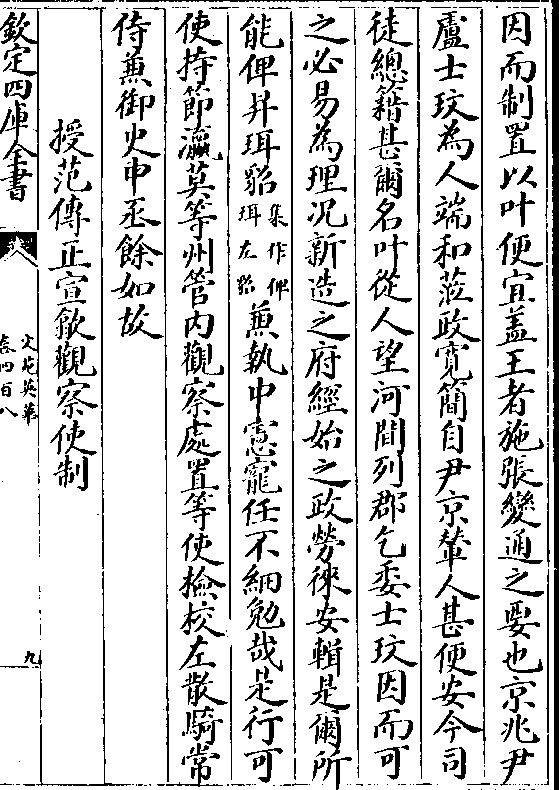 因而制置以叶便宜盖王者施張變通之要也京兆尹
盧士玫為人端和蒞政寛簡自尹京輦人甚便安今司
徒總籍甚爾名叶從人望河間列郡乞委士玫因而可
之必易為理况新造之府經始之政勞徠安輯是爾所
能俾昇珥貂集作俾珥左貂兼執中憲寵任不細勉哉是行可
使持節瀛莫等州管内觀察處置等使檢校左散騎常
侍兼御史中丞餘如故
授范傳正宣歙觀察使制
欽定四庫全書
文苑英華
卷四百八
九